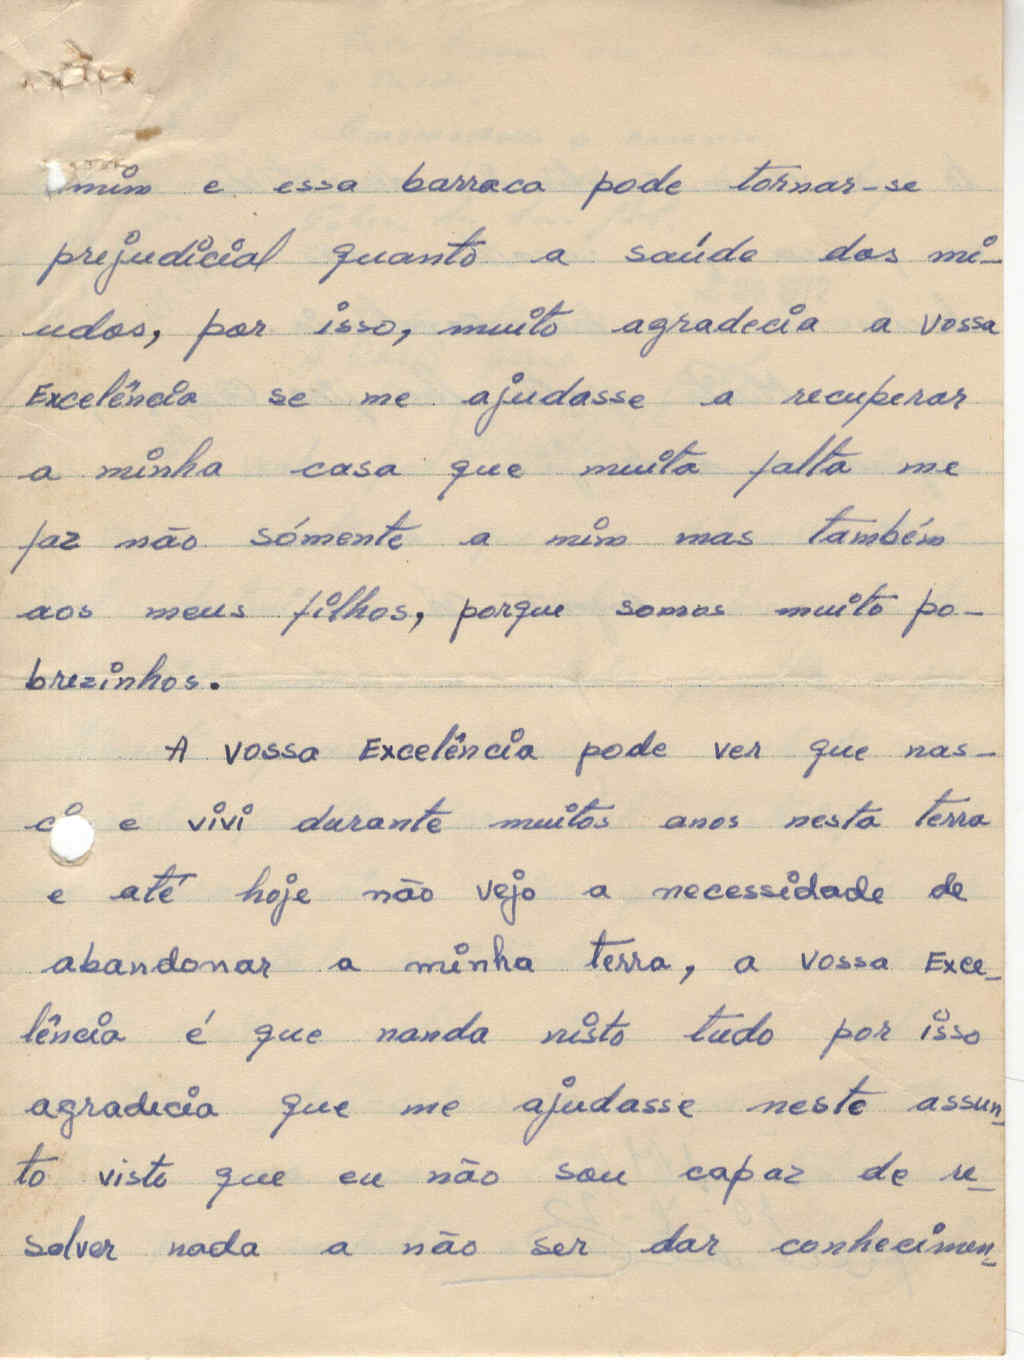 mim e essa barraca pode tornar-se
prejudicial quanto a saúde dos mi-
udos, por isso, muito agradecia a vossa
Excelência se me ajudasse a recuperar
a minha casa que muita falta me
faz não sómente a mim mas também
aos meus filhos, porque somos muito po-
brezinhos.
A vossa Excelência pode ver que nas-
ci e vivi durante muitos anos nesta terra
e até hoje não vejo a necessidade de
abandonar a minha terra, a vossa Exce-
lência é que nanda nisto tudo por isso
agradecia que me ajudasse neste assun-
to visto que eu não sou capaz de re-
solver nada a não ser dar conhecimen-